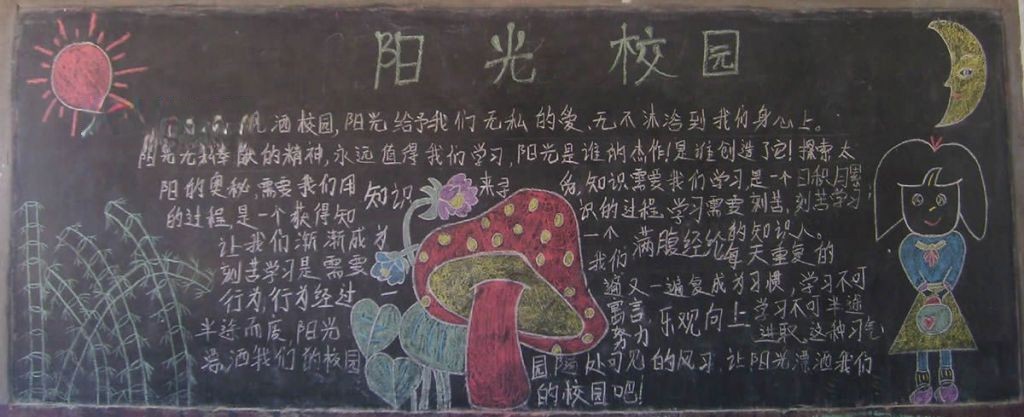 阳光校园
洒校园,阳光给予我们无私的爱,无不沐浴到我们身心上。
阳光无私奉献的精神,永远值得我们学习,阳光是谁的杰作!是谁创造了它!探索太
阳的奥秘,需要我们用知识来寻 知识需要我们学习是一个日积月累
的过程,是一个获得知识的过程,学习需要刻苦,刻苦学习,
让我们渐渐成为一个满腹经纶的知识人。
刻苦学习是需要我们每天重复的
行为,行为经过一遍又一遍复成为习惯,学习不可
半途而废,阳光 需言乐观向上学习不可半途
努力进取,这种习气
洒我们的校园 园 处可见的风习,让阳光漂洒我们
的校园吧!